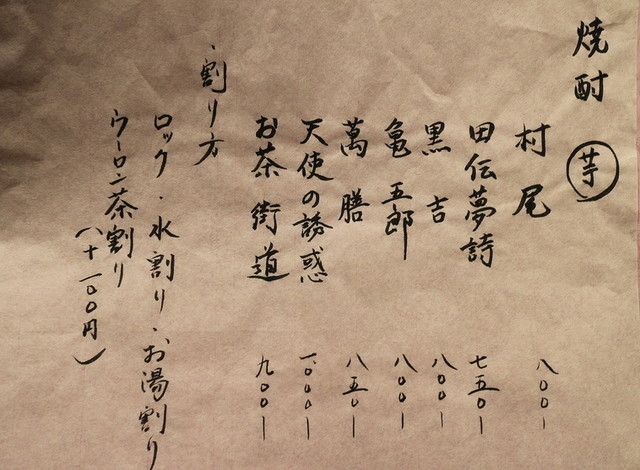 焼酎 芋
村尾 八〇〇ー
田伝夢詩 七五〇ー
黒吉 八〇〇ー
亀五郎 八〇〇ー
萬膳 八五〇ー
天使の誘惑 一、〇〇〇ー
お茶街道 九〇〇ー
・割り方
ロック・水割り・お湯割り
ウーロン茶割り
(+一〇〇円)